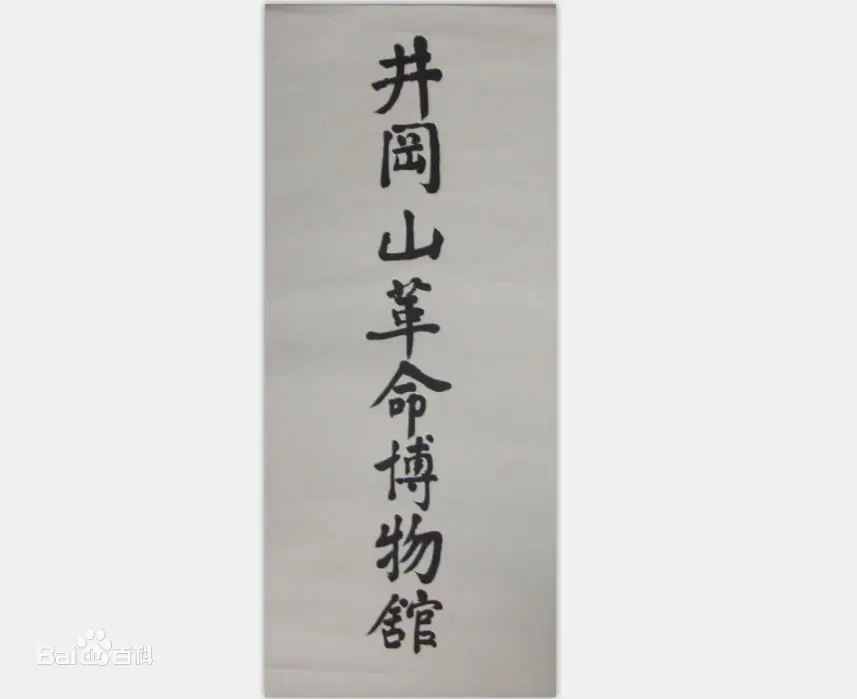 井岡山革命博物舘
Bai百科